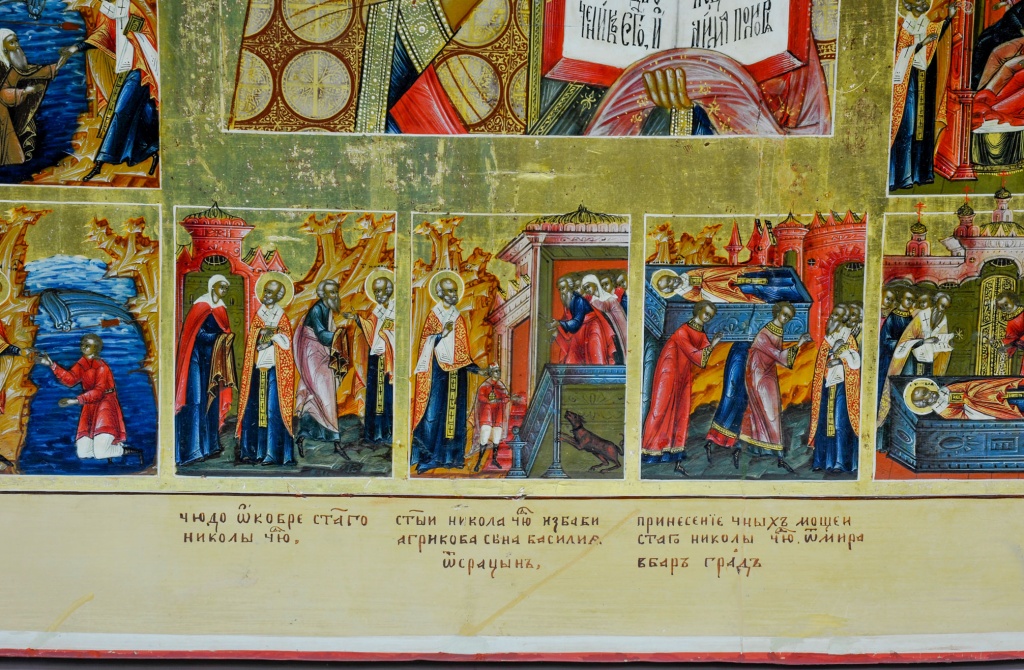 чюдо ѿ кобре ст҃аго
николы чю҃.
ст҃ыи никола чю҃ избави
агрикова сына василиѧ.
ѿсрацынъ.
принесение чных мощеи
стаг҃ николы чю҃. ѿмира
вбаръ градъ